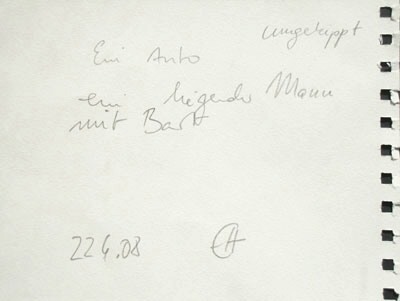 umgekippt
Ein Auto
ein liegender Mann
mit Bart
22 4.08